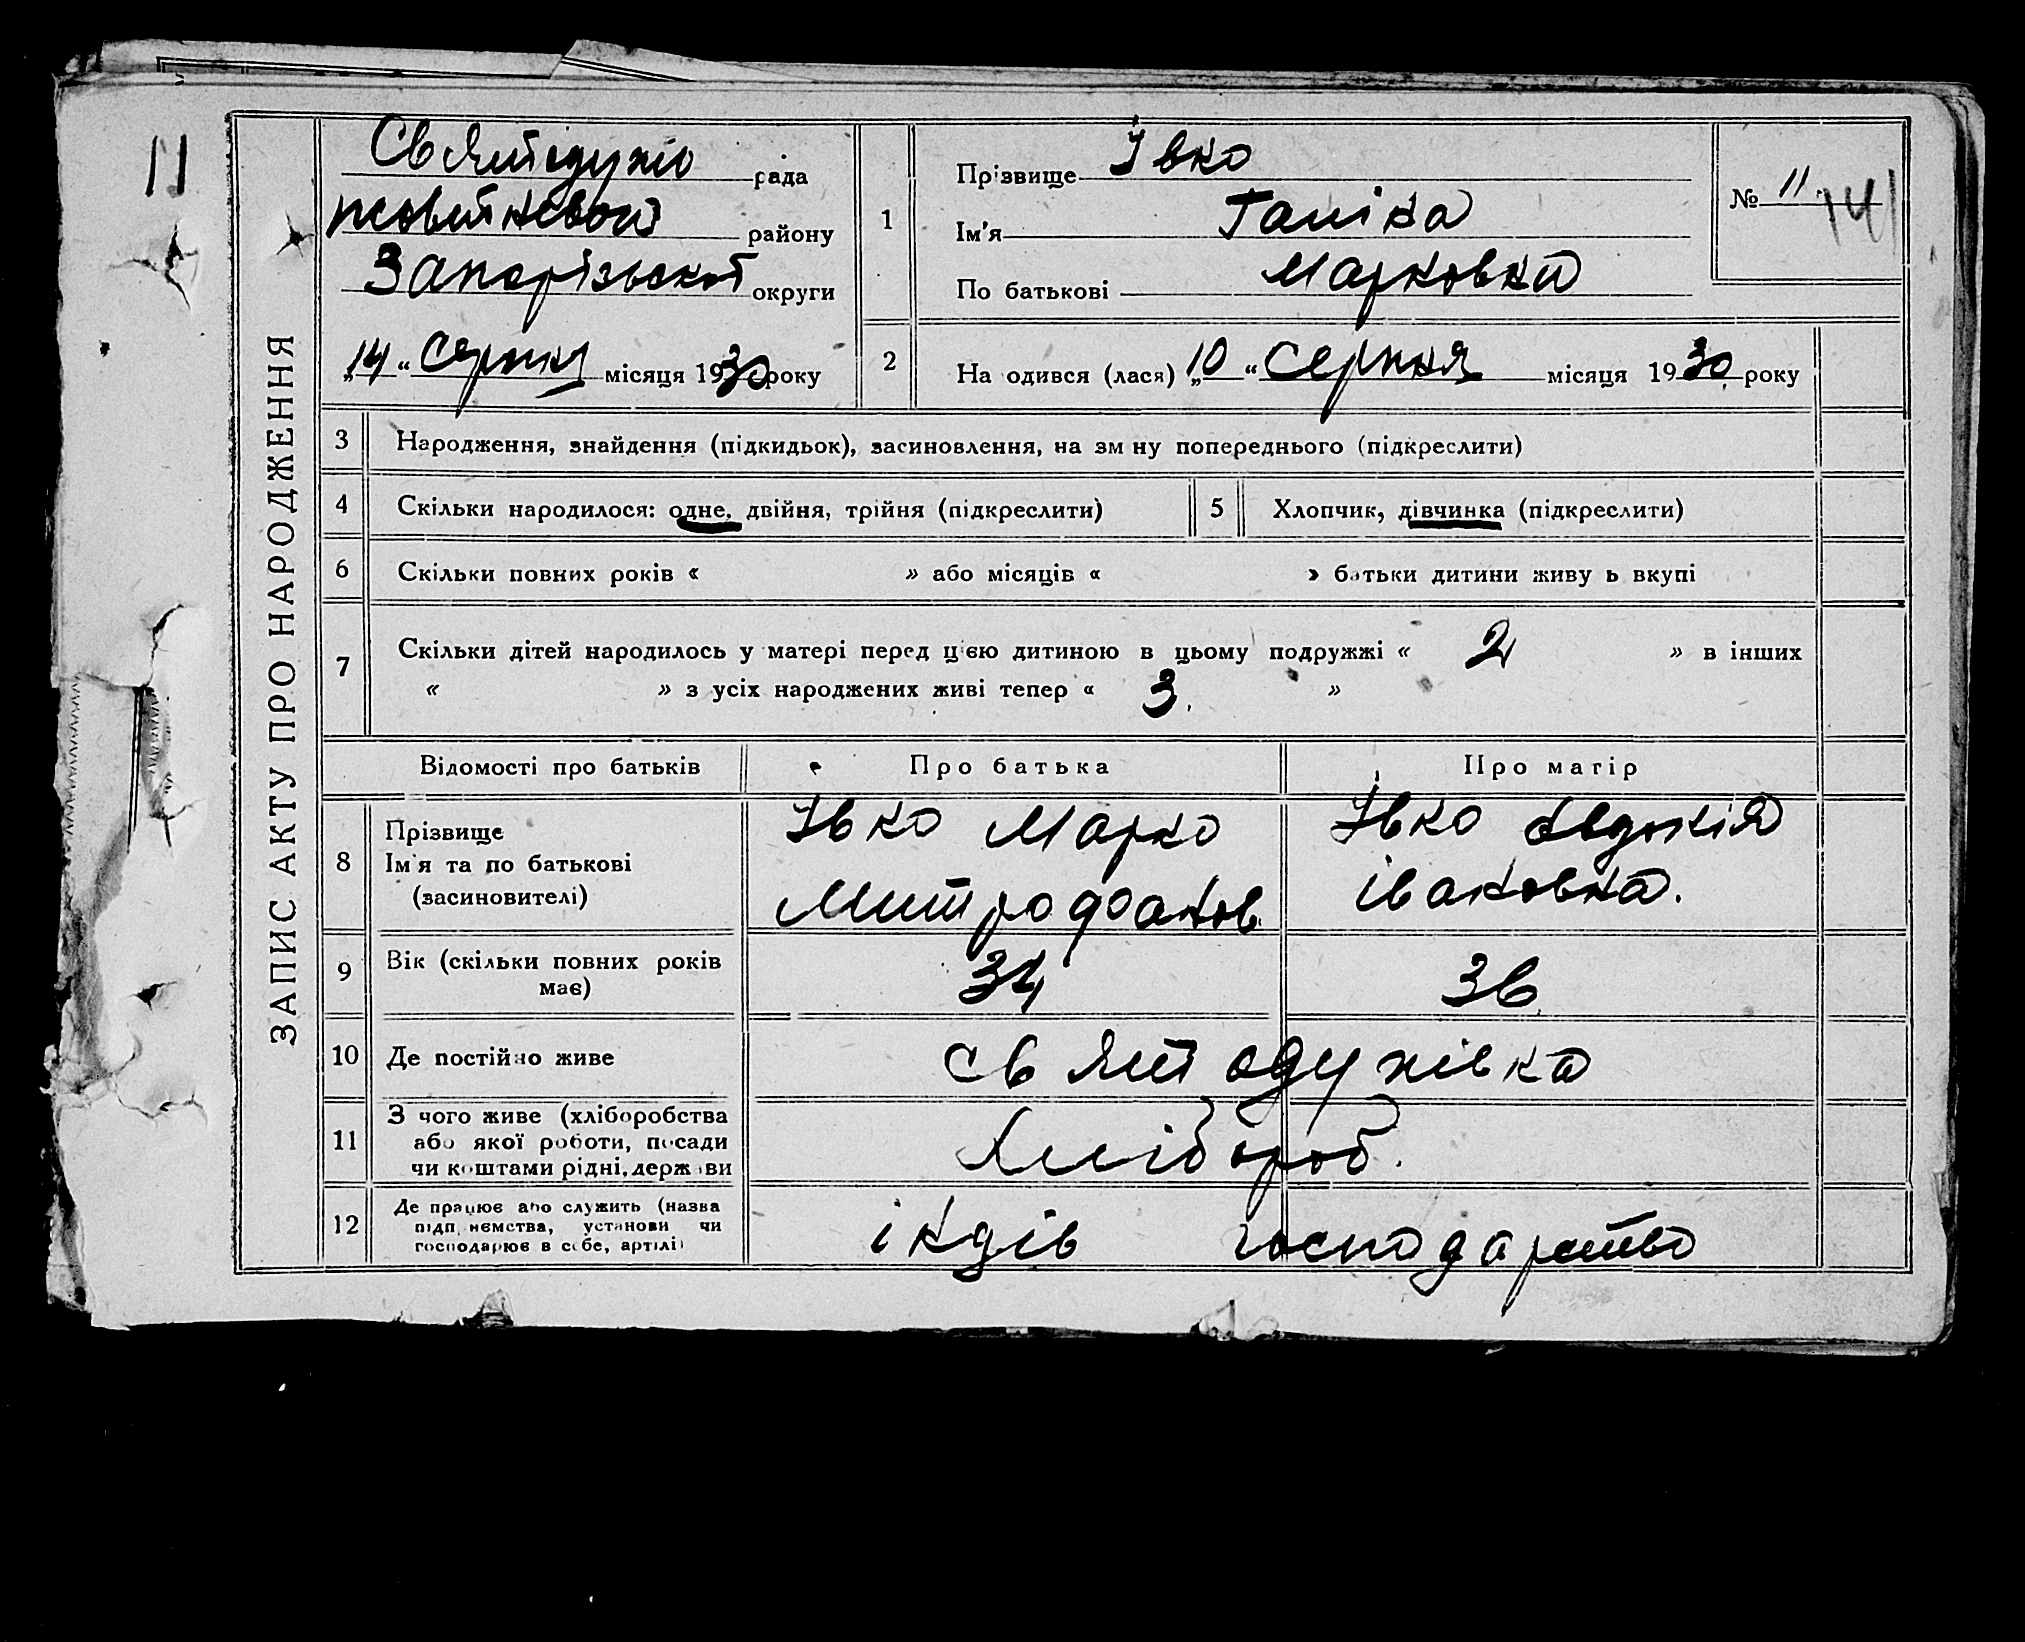 11
ЗАПИС АКТУ ПРО НАРОДЖЕННЯ
Святодухо рада
Жовтневої району
Запорізької округи
„14“ Серпня місяця 1930 року
1
Прізвище Івко
Ім'я Галіна
По батькові Марковна
№ 11 141
2 На одився (лася) „10“ Серпня місяця 1930 року
3 Народження, знайдення (підкидьок), засиновлення, на зм ну попереднього (підкреслити)
4 Скільки народилося: одне, двійня, трійня (підкреслити) 5 Хлопчик, дівчинка (підкреслити)
6 Скільки повних років « » або місяців « » батьки дитини живу ь вкупі
7 Скільки дітей народилось у матері перед цією дитиною в цьому подружжі « 2 » в інших
« » з усіх народжених живі тепер « 3. »
Відомості про батьків Про батька Про матір
8 Прізвище
Ім'я та по батькові
(засиновителі)
Івко Марко
Митрофанов
Івко Авдокія
івановна.
9 Вік (скільки повних років
має)
34 36
10 Де постійно живе Святодухівка
11 З чого живе (хліборобства
або якої роботи, посади
чи коштами рідні, держави
Хлібороб.
12 Де працює або служить (назва
підп иємства, установи чи
господарює в себе, артілі)
індів господарство